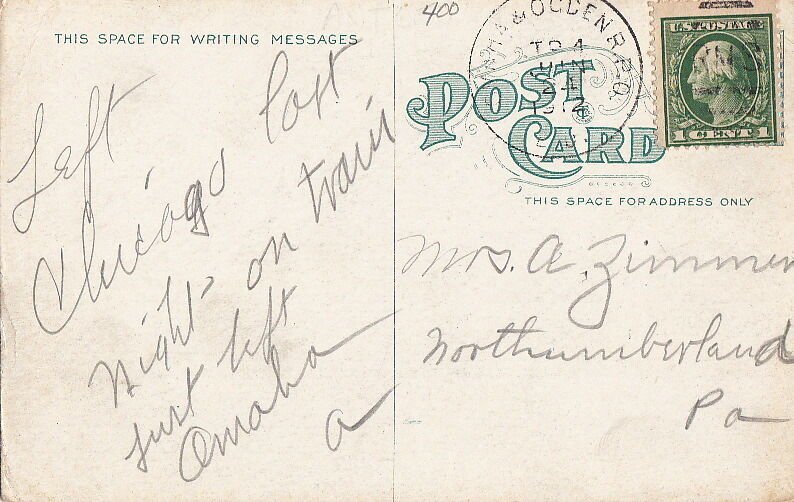 THIS SPACE FOR WRITING MESSAGES
Left
Chicago last
night - on train
just left
Omaha
a
400
& OGDEN R.P.O.
TR 4
JUN
24
1912
U.S. POSTAGE
1 CENT 1
POST
CARD
THIS SPACE FOR ADDRESS ONLY
Mrs. A. Zimmer
Northumberland
Pa